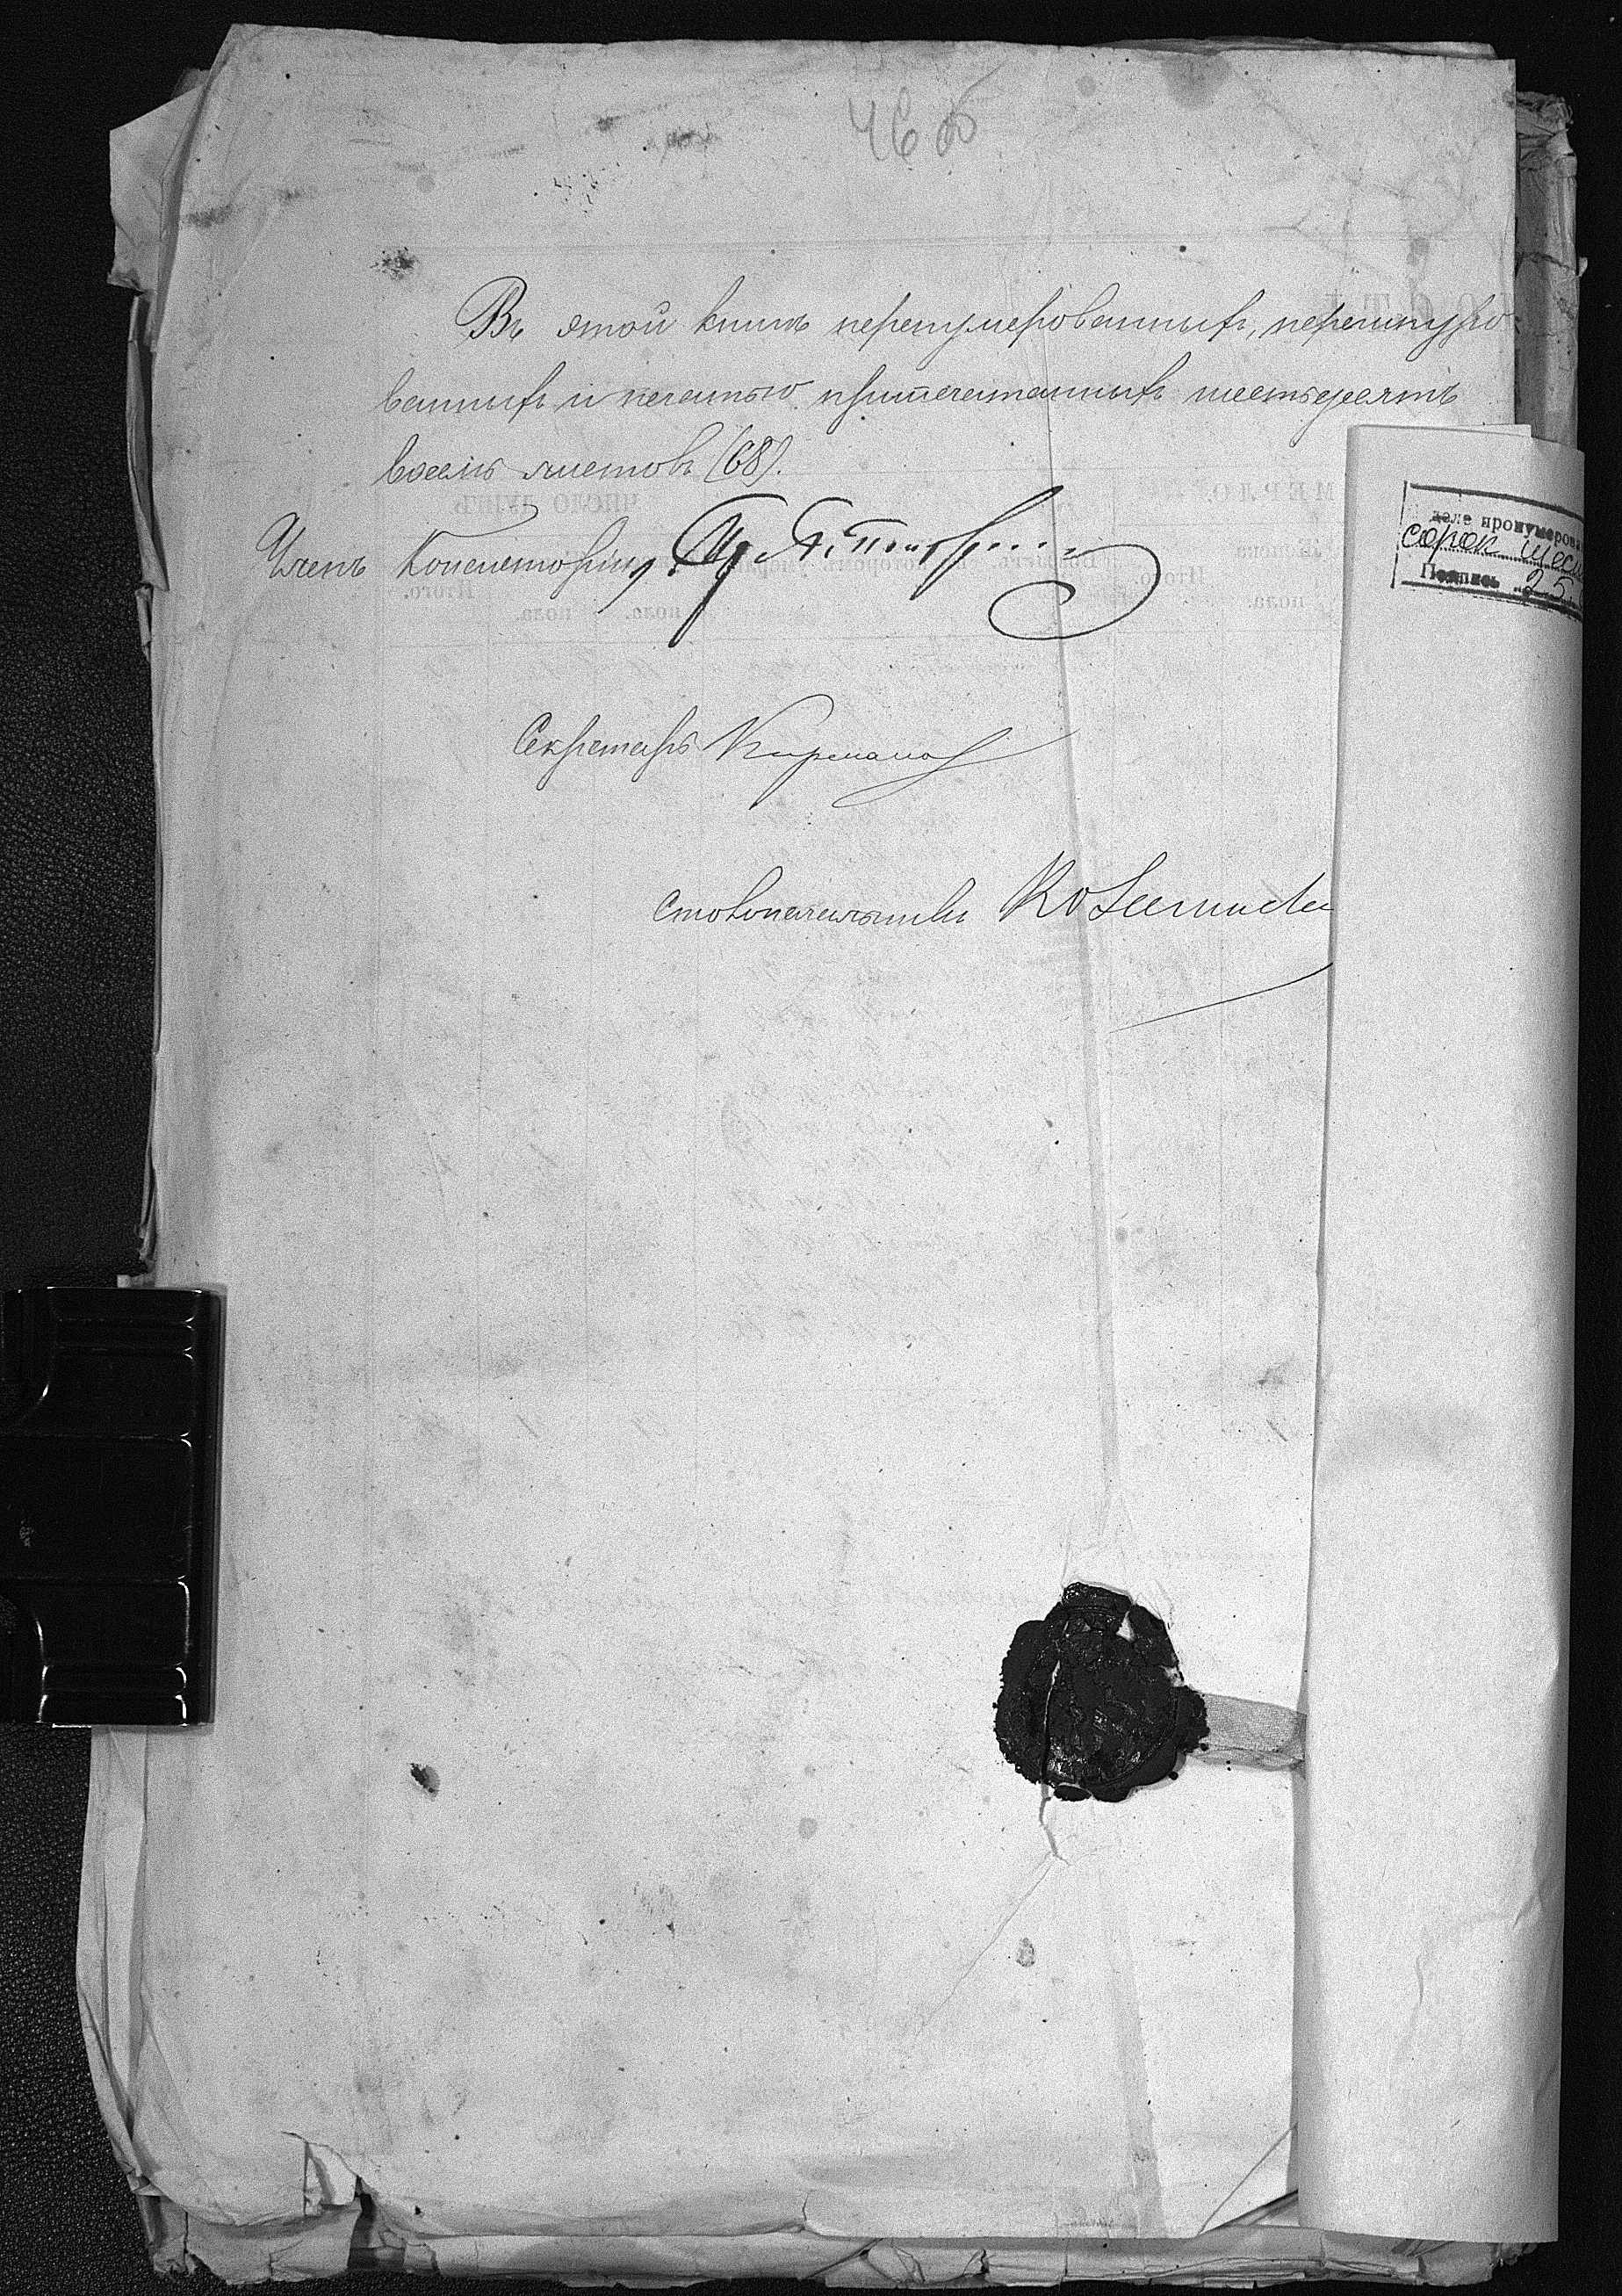 46 об
Въ этой книгѣ перенумерованныхъ, перешнуро-
ванныхъ и печатью припечатанныхъ шестьдесятъ
восемь листовъ (68).
Членъ Консисторіи,
Секретарь
Столоначальникъ
деле пронумерова
сорок шес
Подпись 25.